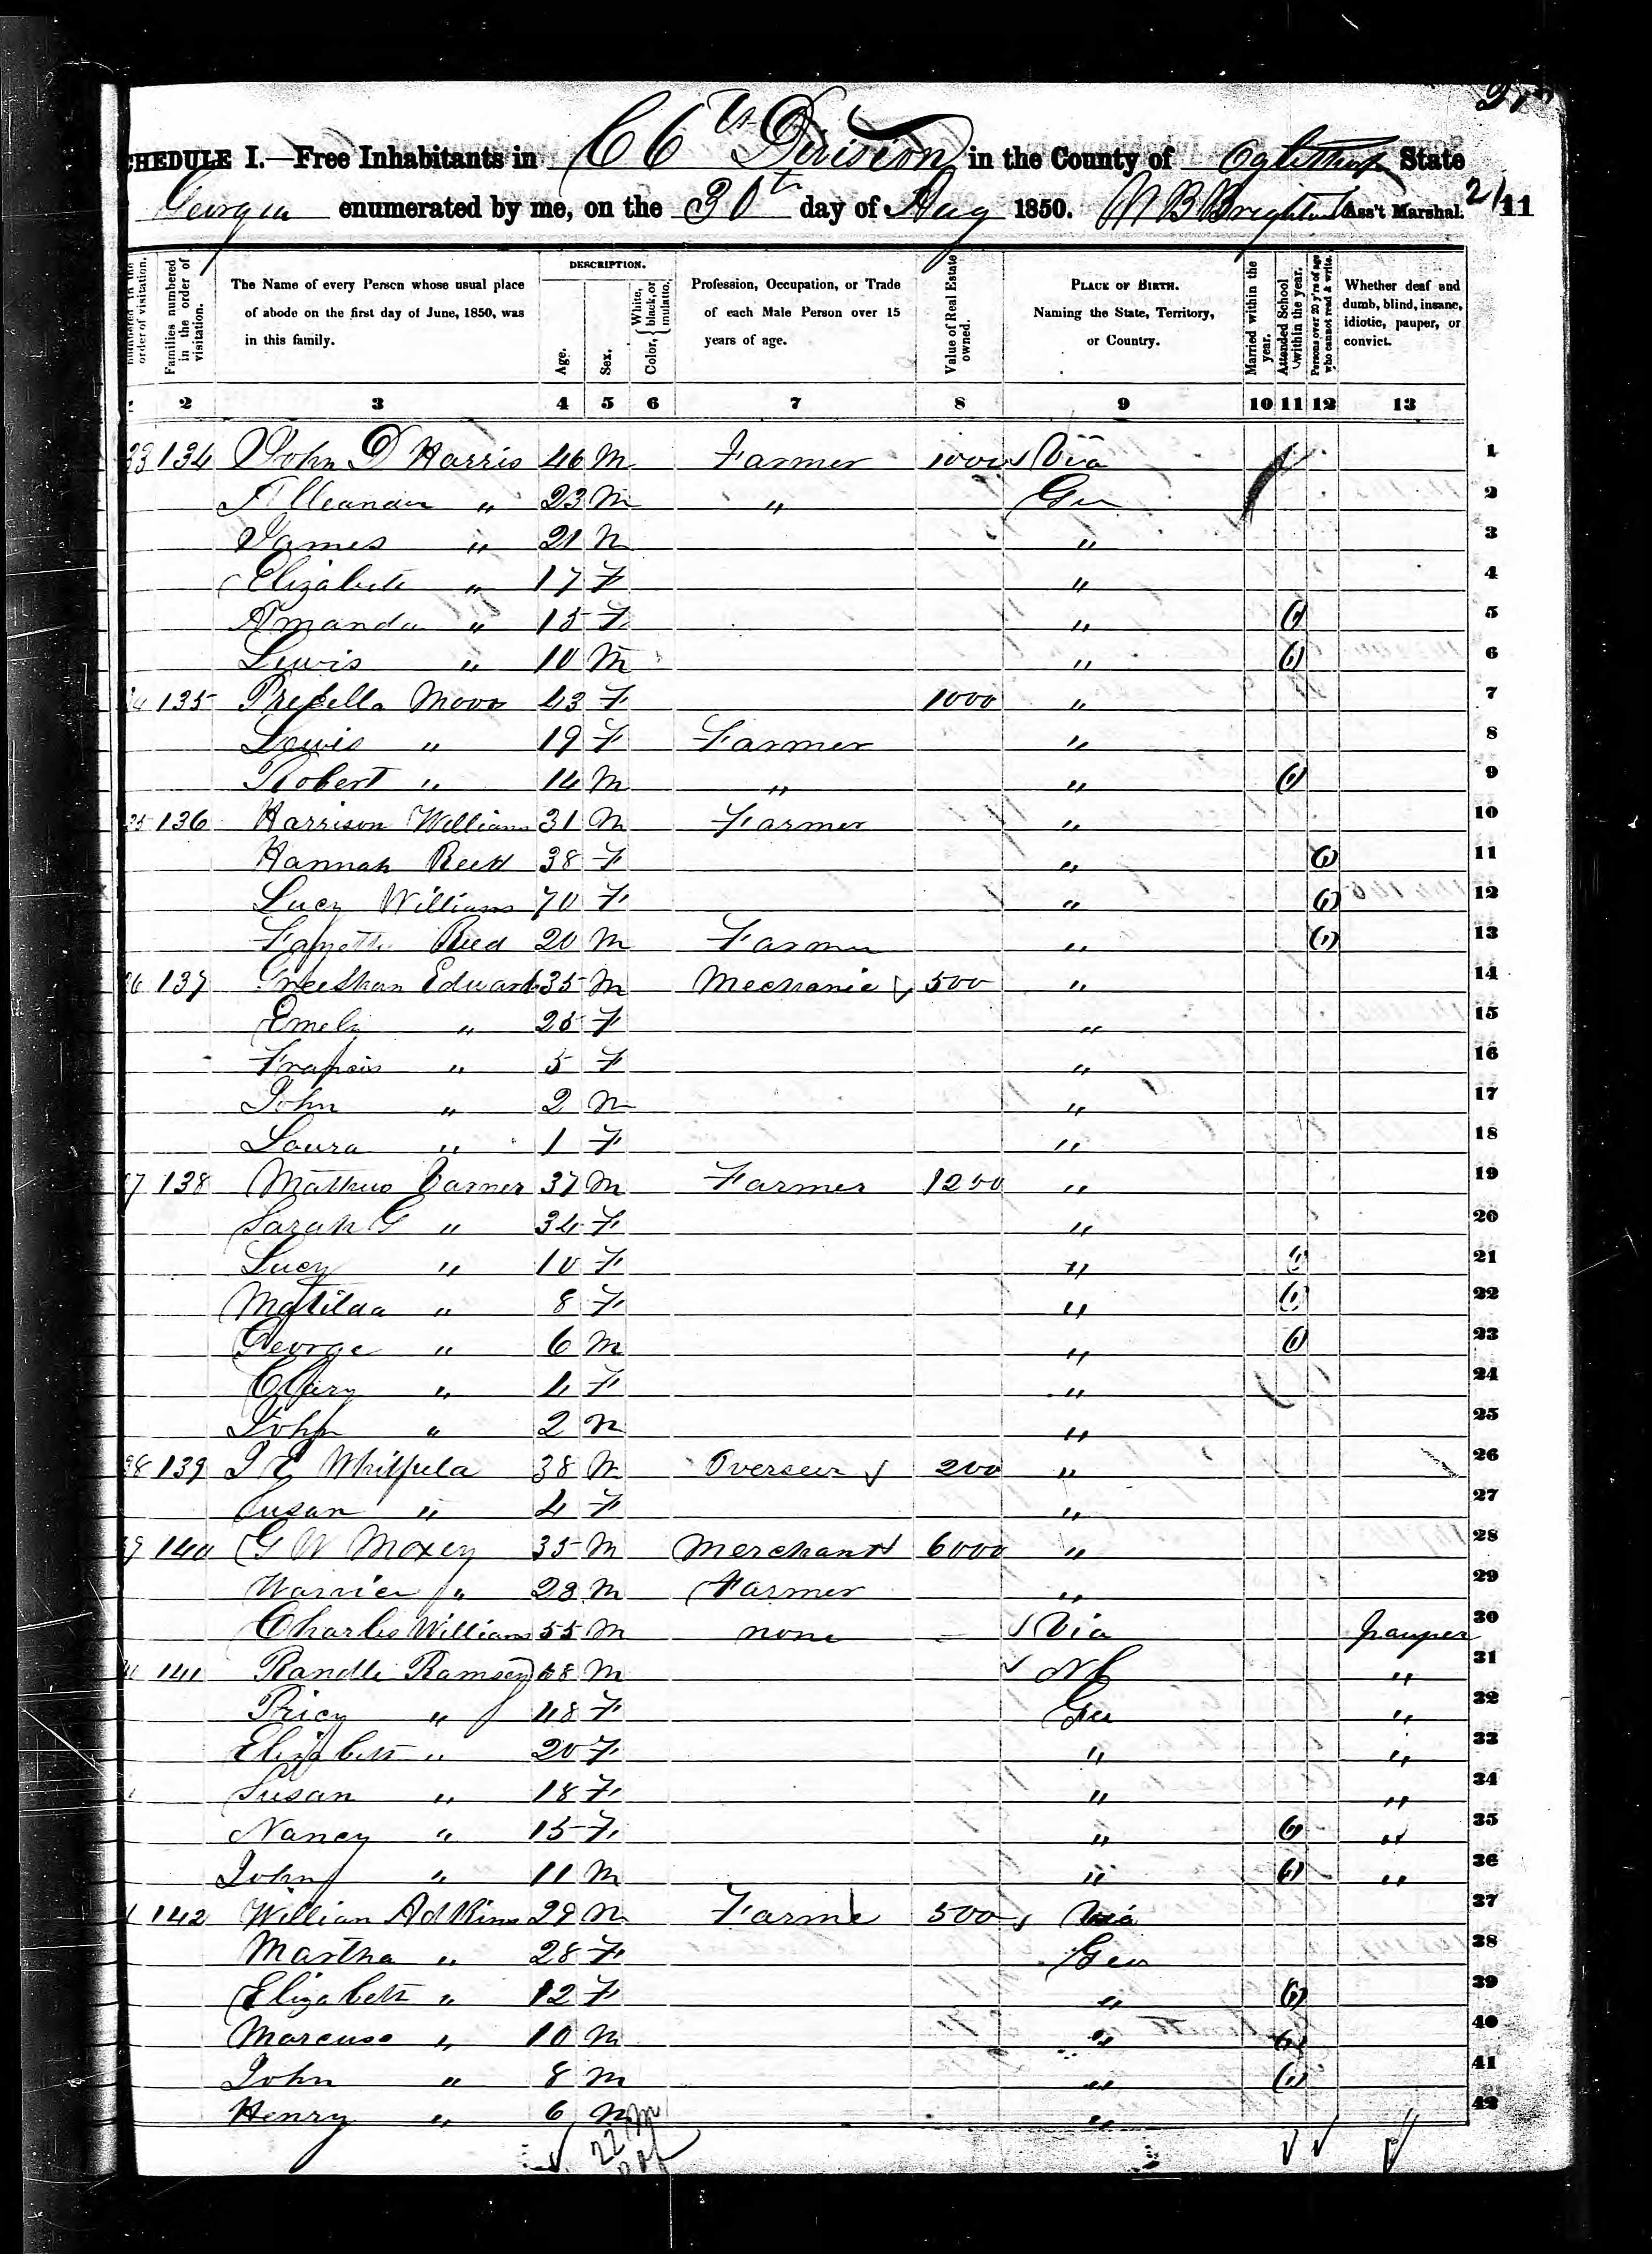 CHEDULE I.—Free Inhabitants in CC Division in the County of Oglethorpe State
Georgia enumerated by me, on the 30th day of Aug 1850. Ass't Marshal. 211
DESCRIPTION.
numbered in the order of visitation.
Families numbered in the order of visitation.
The Name of every Person whose usual place of abode on the first day of June, 1850, was in this family.
Age.
Sex.
Color, { White, black, or mulatto.
Profession, Occupation, or Trade of each Male Person over 15 years of age.
Value of Real Estate owned.
PLACE OF BIRTH. Naming the State, Territory, or Country.
Married within the year.
Attended School within the year.
Persons over 20 y'rs of age who cannot read & write.
Whether deaf and dumb, blind, insane, idiotic, pauper, or convict.
2 3 4 5 6 7 8 9 10 11 12 13
134 John D Harris 46 M Farmer 1000 Via 1
23 M " Geo 2
James " 21 M " 3
Elizabeth " 17 F " 4
Amanda " 15 F " (1) 5
Lewis " 10 M " (1) 6
135 43 F 1000 " 7
Lewis " 19 F Farmer " 8
Robert " 14 M " " (1) 9
136 Harrison Williams 31 M Farmer " 10
Hannah Reed 38 F " (1) 11
Lucy Williams 70 F " (1) 12
Reed 20 M Farmer " (1) 13
137 Edwards 35 M Mechanic 500 " 14
Emely " 25 F " 15
Francis " 5 F " 16
John " 2 M " 17
Laura " 1 F " 18
138 37 M Farmer 1200 " 19
Sarah G " 34 F " 20
Lucy " 10 F " (1) 21
Matilda " 8 F " (1) 22
George " 6 M " (1) 23
" 4 F " 24
John " 2 M " 25
139 38 M Overseer 200 " 26
Susan " 4 F " 27
140 G W Moxey 35 M Merchant 6000 " 28
" 28 M Farmer " 29
Charles Williams 55 M none Via pauper 30
141 Randle Ramsey 68 M NC " 31
Pricy " 48 F Geo " 32
Elizabeth " 20 F " " 33
Susan " 18 F " " 34
Nancy " 15 F " (1) " 35
John " 11 M " (1) " 36
142 William Adkins 29 M Farme 500 Via 37
Martha " 28 F Geo 38
Elizabeth " 12 F " (1) 39
Marcuse " 10 M " (1) 40
John " 8 M " (1) 41
Henry " 6 M " 42
22 M